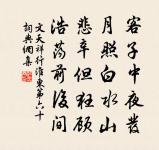 客子中夜發
月照白水山
悲辛但狂顧
浩蕩前後間
文天祥行淮東第六十
詞典網集